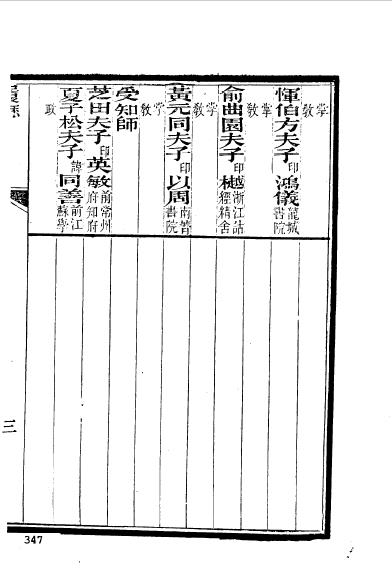 掌教
惲伯方夫子印鴻儀龍城書院
掌教
俞曲園夫子印樾浙江詁經精舍
掌教
黃元同夫子印以周南菁書院
掌教
受知師
芝田夫子印英敏前常州府知府
夏子松夫子諱同善前江蘇學
政
三
347